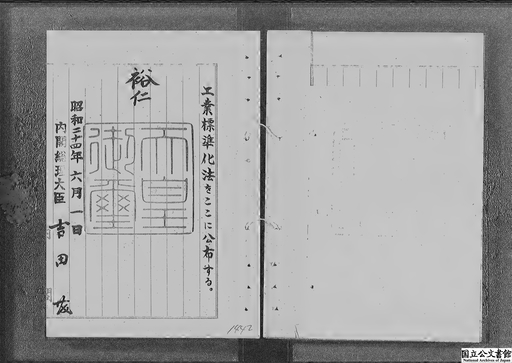 工業標準化法をここに公布する。
裕仁
天皇御璽
昭和二十四年六月一日
内閣総理大臣 吉田茂
1442
国立公文書館
National Archives of Japan